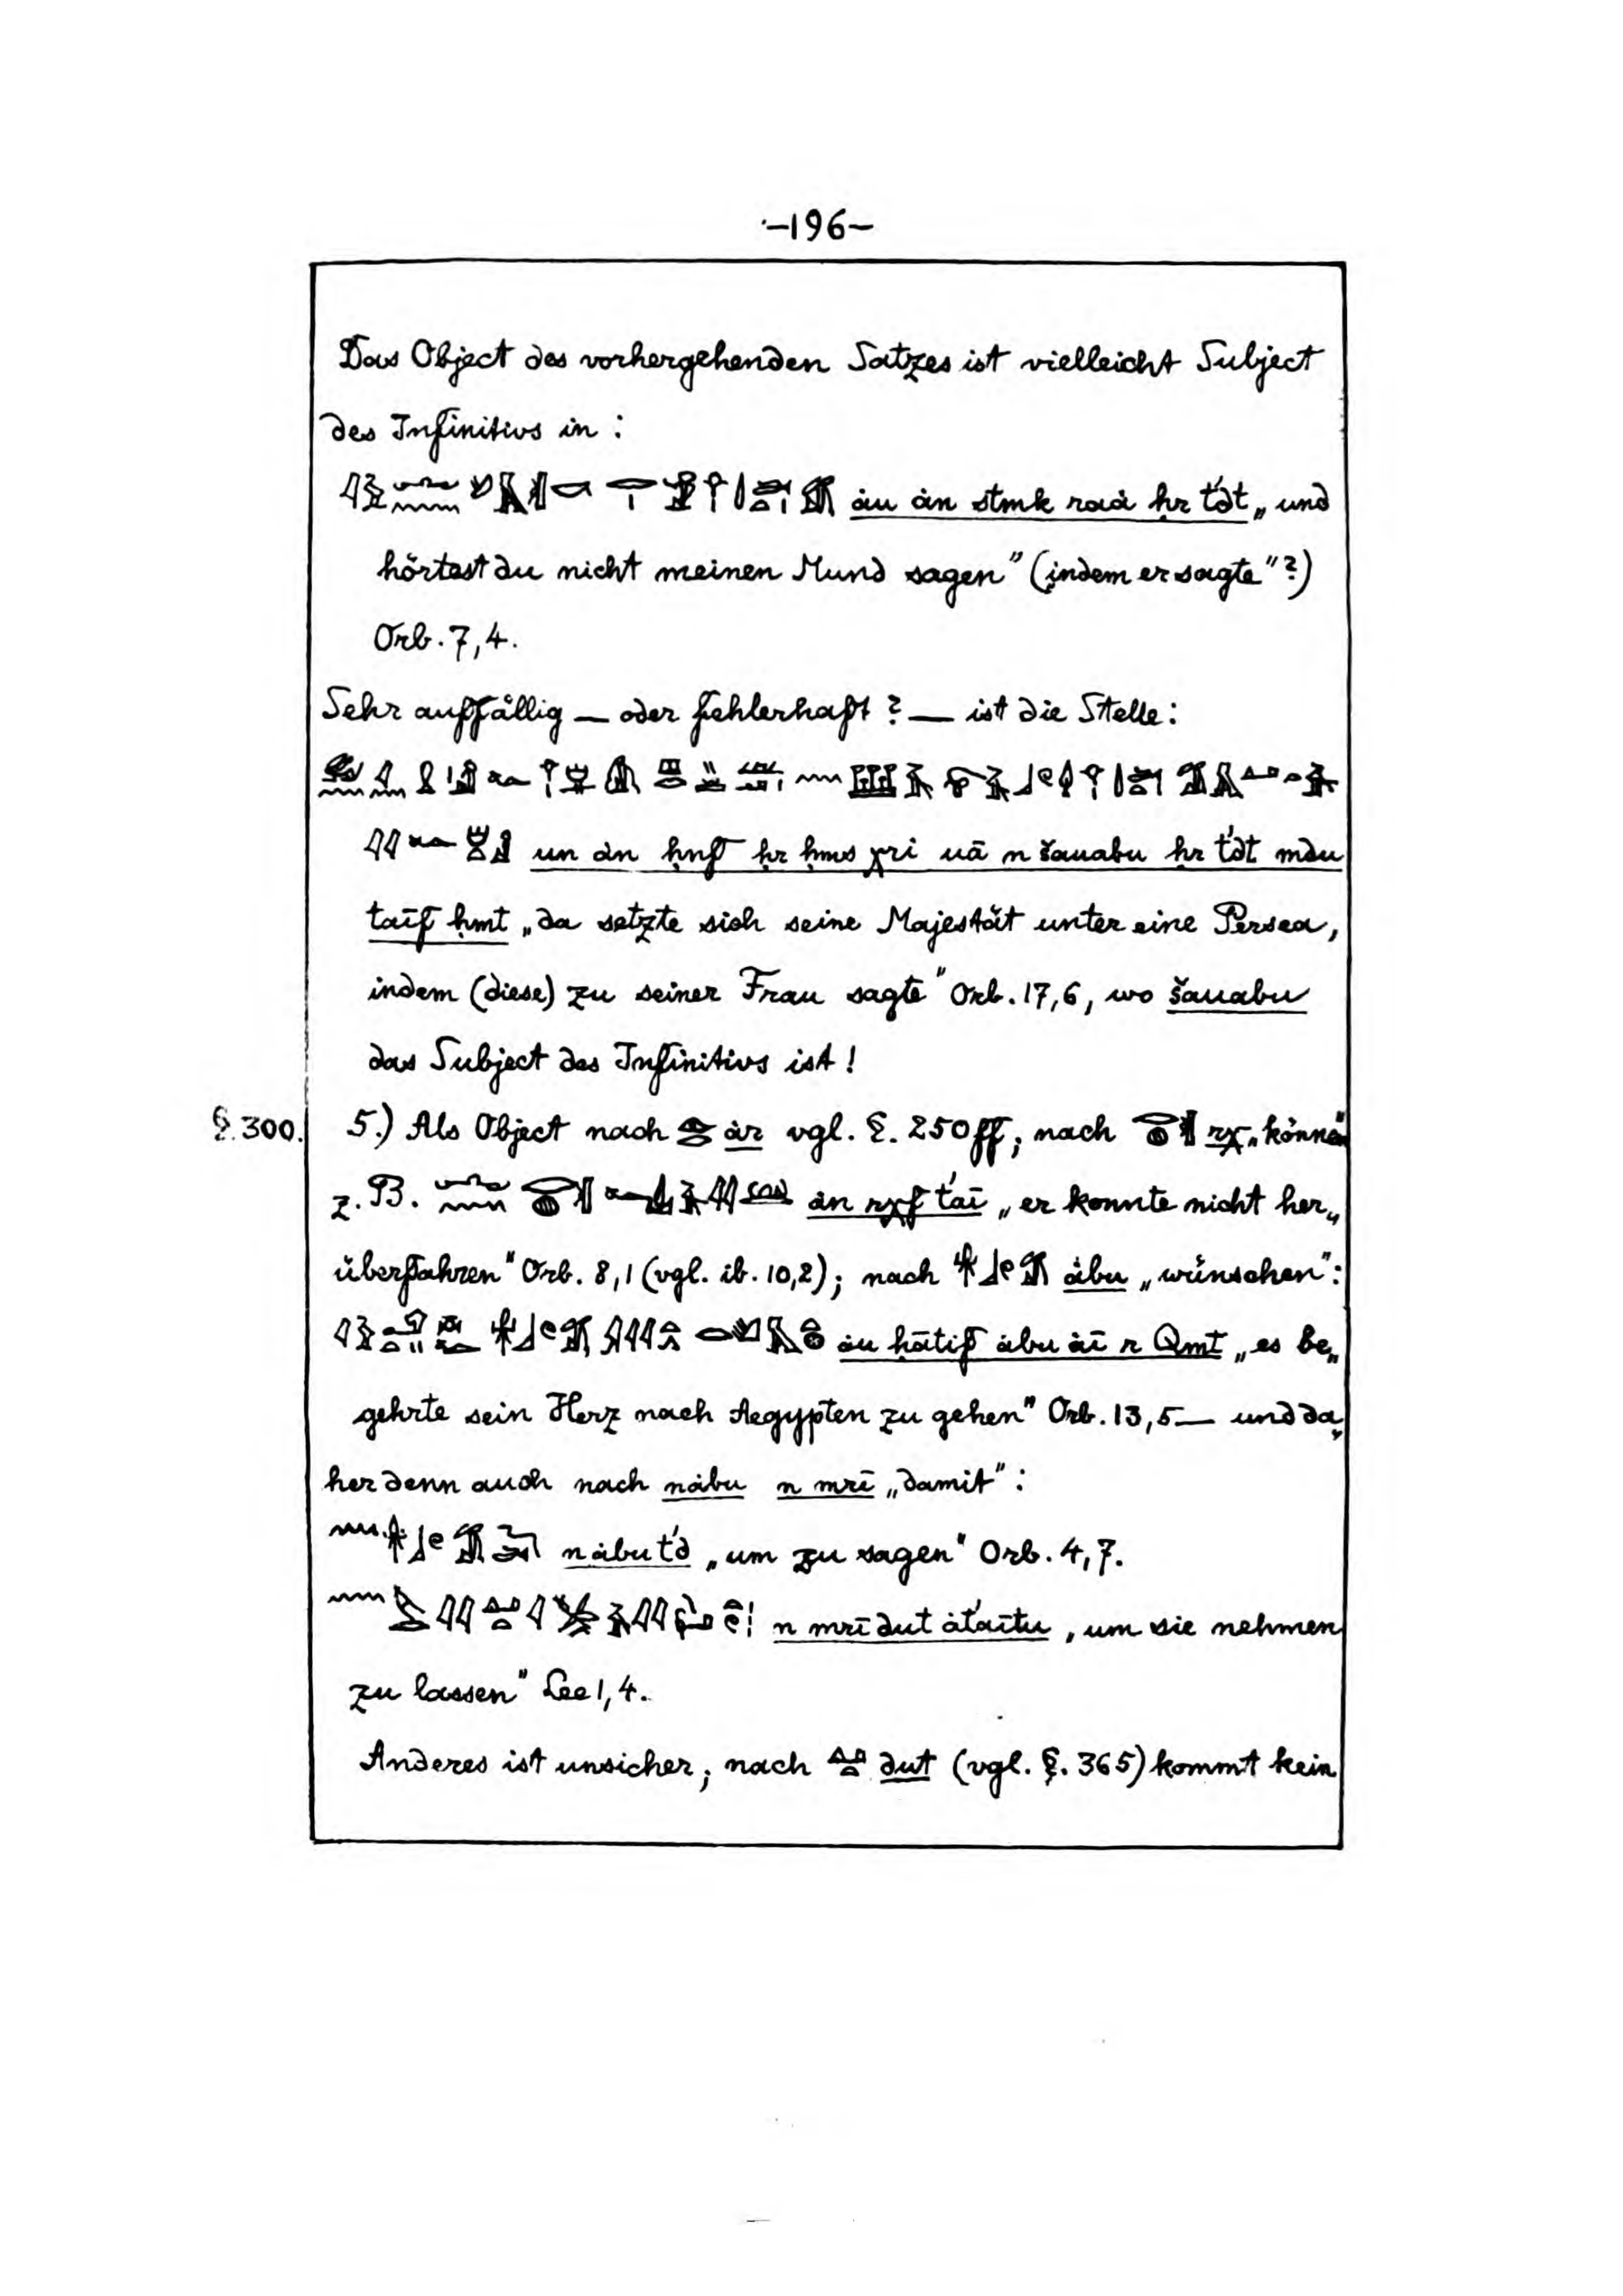 –196–
Das Object des vorhergehenden Satzes ist vielleicht Subject
des Infinitivs in :
ȧu ȧn stmk raȧ ḥr t́dt „und
hörtest du nicht meinen Mund sagen" (indem er sagte"?)
Orb. 7,4.
Sehr auffällig — oder fehlerhaft? — ist die Stelle:
un ȧn ḥnf ḥr ḥms χri uā n šauabu ḥr t́dt mdu
taīf ḥmt „da setzte sich seine Majestät unter eine Persea,
indem (diese) zu seiner Frau sagte" Orb. 17,6, wo šauabu
das Subject des Infinitivs ist!
§.300. 5.) Als Object nach ȧr vgl. §. 250ff; nach rχ „können"
z. B. ȧn rχf t́aī „er konnte nicht her„
überfahren" Orb. 8,1 (vgl. ib. 10,2); nach ȧbu „wünschen":
ȧu ḥātif ȧbu ȧī r Qmt „es be„
gehrte sein Herz nach Aegypten zu gehen" Orb. 13,5 — und da„
her denn auch nach nȧbu n mrī „damit":
nȧbu t́d „um zu sagen" Orb. 4,7.
n mrī dut ȧt́aītu „um sie nehmen
zu lassen" Lee 1,4.
Anderes ist unsicher; nach dut (vgl. §. 365) kommt kein